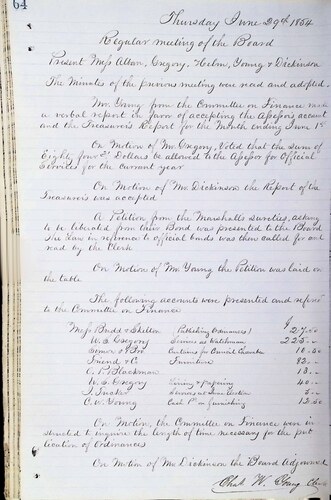 64
Thursday June 29th 1854
Regular meeting of the Board
Present Mess Allan, Gregory, Helm, Young & Dickinson
The Minutes of the previous meeting were read and adopted.
Mr. Young from the Committee on Finance made
a verbal report in favor of accepting the Assessors account
and the Treasurers Report for the Month ending June 1st
On Motion of Mr Gregory, Voted that the sum of
Eighty four Dollars be allowed to the Assessor for Official
Services for the current year
On Motion of Mr Dickinson the Report of the
Treasurer was accepted
A Petition from the Marshalls sureties, asking
to be liberated from their Bond was presented to the Board
The Law in reference to official bonds was then called for and
read by the Clerk
On Motion of Mr Young the Petition was laid on
the table
The following accounts were presented and refered
to the Committee on Finance
Mess Budd & Shelton Publishing Ordinances $27.50
W. S. Gregory Services as Watchman 225.--
& Bro for Council Chamber 10.50
Friend & Co Furniture 82.--
A. P. Blackman 13.--
W. S. Gregory & 40.--
J. Tucker Services at Election 5.--
C. W. Young Cash for furnishing 13.50
On Motion, the Committee on Finance were in-
structed to inquire the length of time necessary for the pub-
lication of Ordinances
On Motion of Mr Dickinson the Board Adjourned
Chas W. Young Clerk